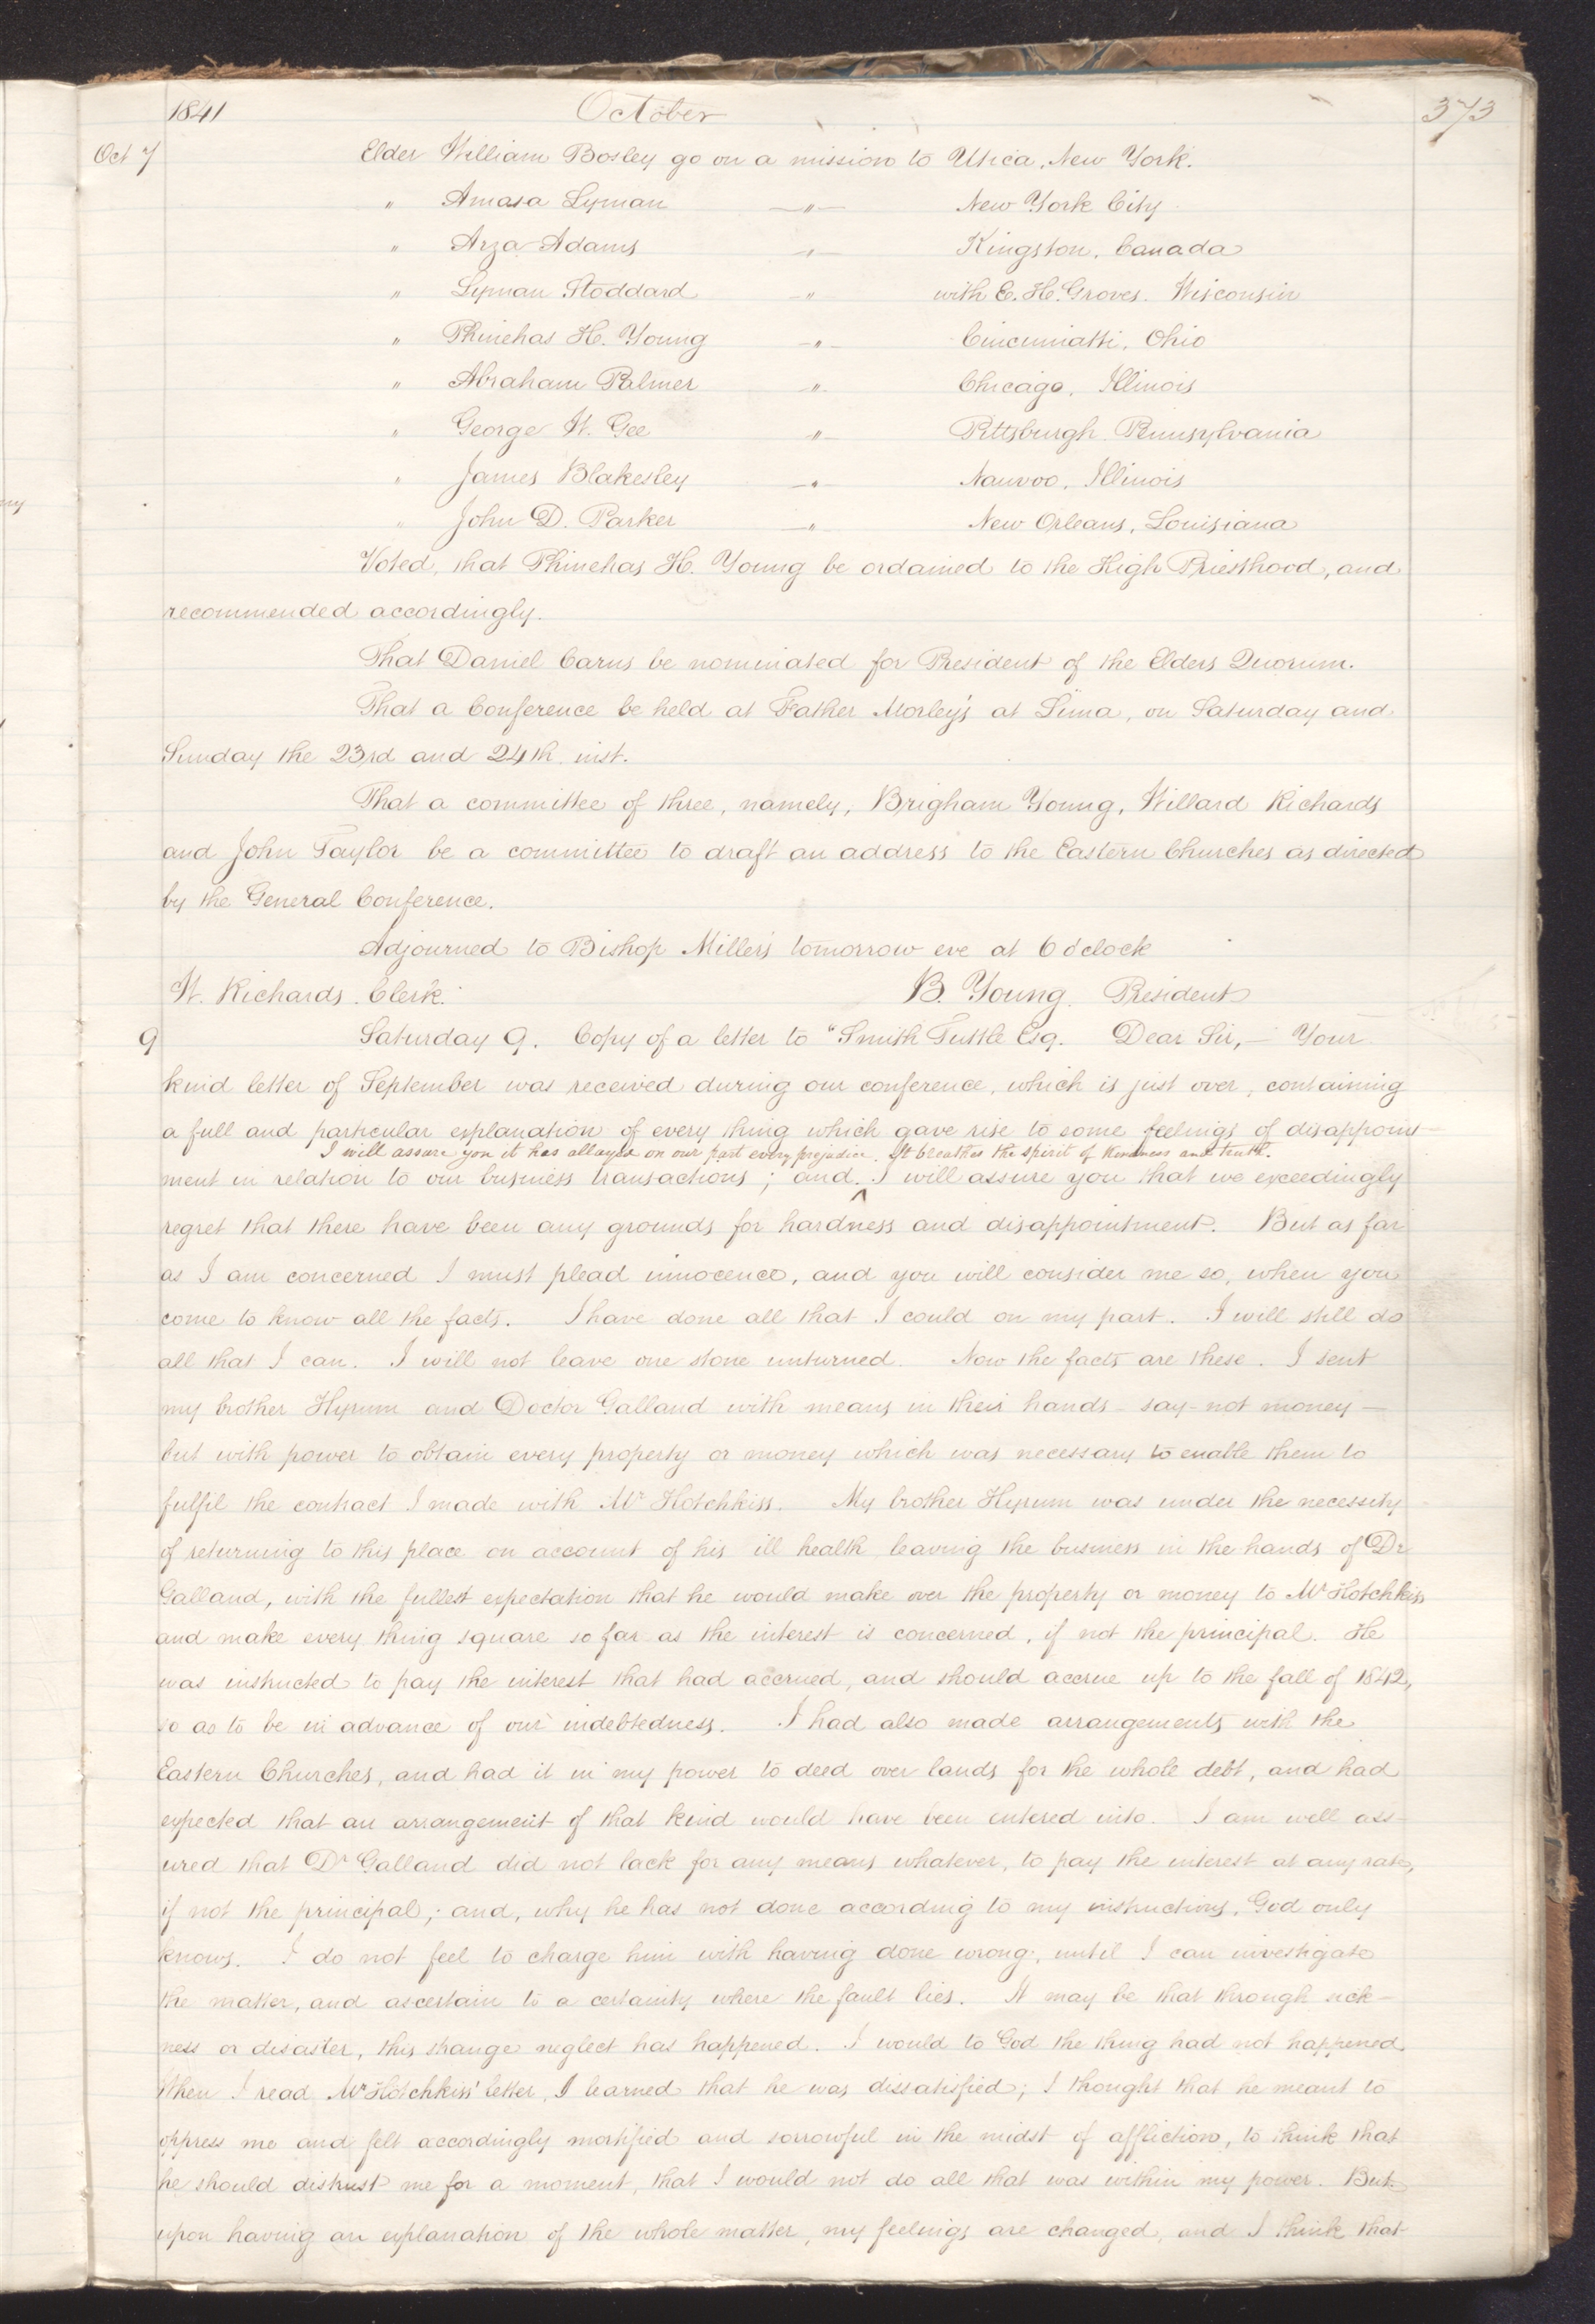 1841 October 373
Oct 7 Elder William Bosley go on a mission to Utica, New York.
" Amasa Lyman —"— New York City
" Arza Adams —"— Kingston, Canada
" Lyman Stoddard —"— with E. H. Groves. Wisconsin
" Phinehas H. Young —"— Cincinnatti, Ohio
" Abraham Palmer —"— Chicago, Illinois
" George W. Gee —"— Pittsburgh Pennsylvania
" James Blakesley —"— Nauvoo, Illinois
" John D. Parker —"— New Orleans, Louisiana
Voted, that Phinehas H. Young be ordained to the High Priesthood, and
recommended accordingly.
That Daniel Carns be nominated for President of the Elders Quorum.
That a Conference be held at Father Morley's at Lima, on Saturday and
Sunday the 23rd and 24th inst.
That a committee of three, namely, Brigham Young, Willard Richards
and John Taylor be a committee to draft an address to the Eastern Churches as directed
by the General Conference.
Adjourned to Bishop Miller's tomorrow eve at 6 o'clock
W. Richards. Clerk. B. Young. President
9 Saturday 9. Copy of a letter to "Smith Tuttle Esq. Dear Sir,— Your
kind letter of September was received during our conference, which is just over, containing
a full and particular explanation of every thing which gave rise to some feelings of disappoint-
I will assure you it has allayed on our part every prejudice. It breathes the spirit of kindness and truth.
ment in relation to our business transactions; and ^ I will assure you that we exceedingly
regret that there have been any grounds for hardness and disappointment. But as far
as I am concerned I must plead innocence, and you will consider me so, when you
come to know all the facts. I have done all that I could on my part. I will still do
all that I can. I will not leave one stone unturned. Now the facts are these. I sent
my brother Hyrum and Doctor Galland with means in their hands – say – not money —
but with power to obtain every property or money which was necessary to enable them to
fulfil the contract I made with Mr Hotchkiss. My brother Hyrum was under the necessity
of returning to this place on account of his ill health leaving the business in the hands of Dr
Galland, with the fullest expectation that he would make over the property or money to Mr Hotchkiss
and make every thing square so far as the interest is concerned, if not the principal. He
was instructed to pay the interest that had accrued, and should accrue up to the fall of 1842,
so as to be in advance of our indebtedness. I had also made arrangements with the
Eastern Churches, and had it in my power to deed over lands for the whole debt, and had
expected that an arrangement of that kind would have been entered into. I am well ass-
ured that Dr Galland did not lack for any means whatever, to pay the interest at any rate,
if not the principal; and, why he has not done according to my instructions, God only
knows. I do not feel to charge him with having done wrong, until I can investigate
the matter, and ascertain to a certainty where the fault lies. It may be that through sick-
ness or disaster, this strange neglect has happened. I would to God the thing had not happened
When I read Mr Hotchkiss' letter, I learned that he was dissatisfied; I thought that he meant to
oppress me and felt accordingly mortified and sorrowful in the midst of affliction, to think that
he should distrust me for a moment, that I would not do all that was within my power. But
upon having an explanation of the whole matter, my feelings are changed, and I think that